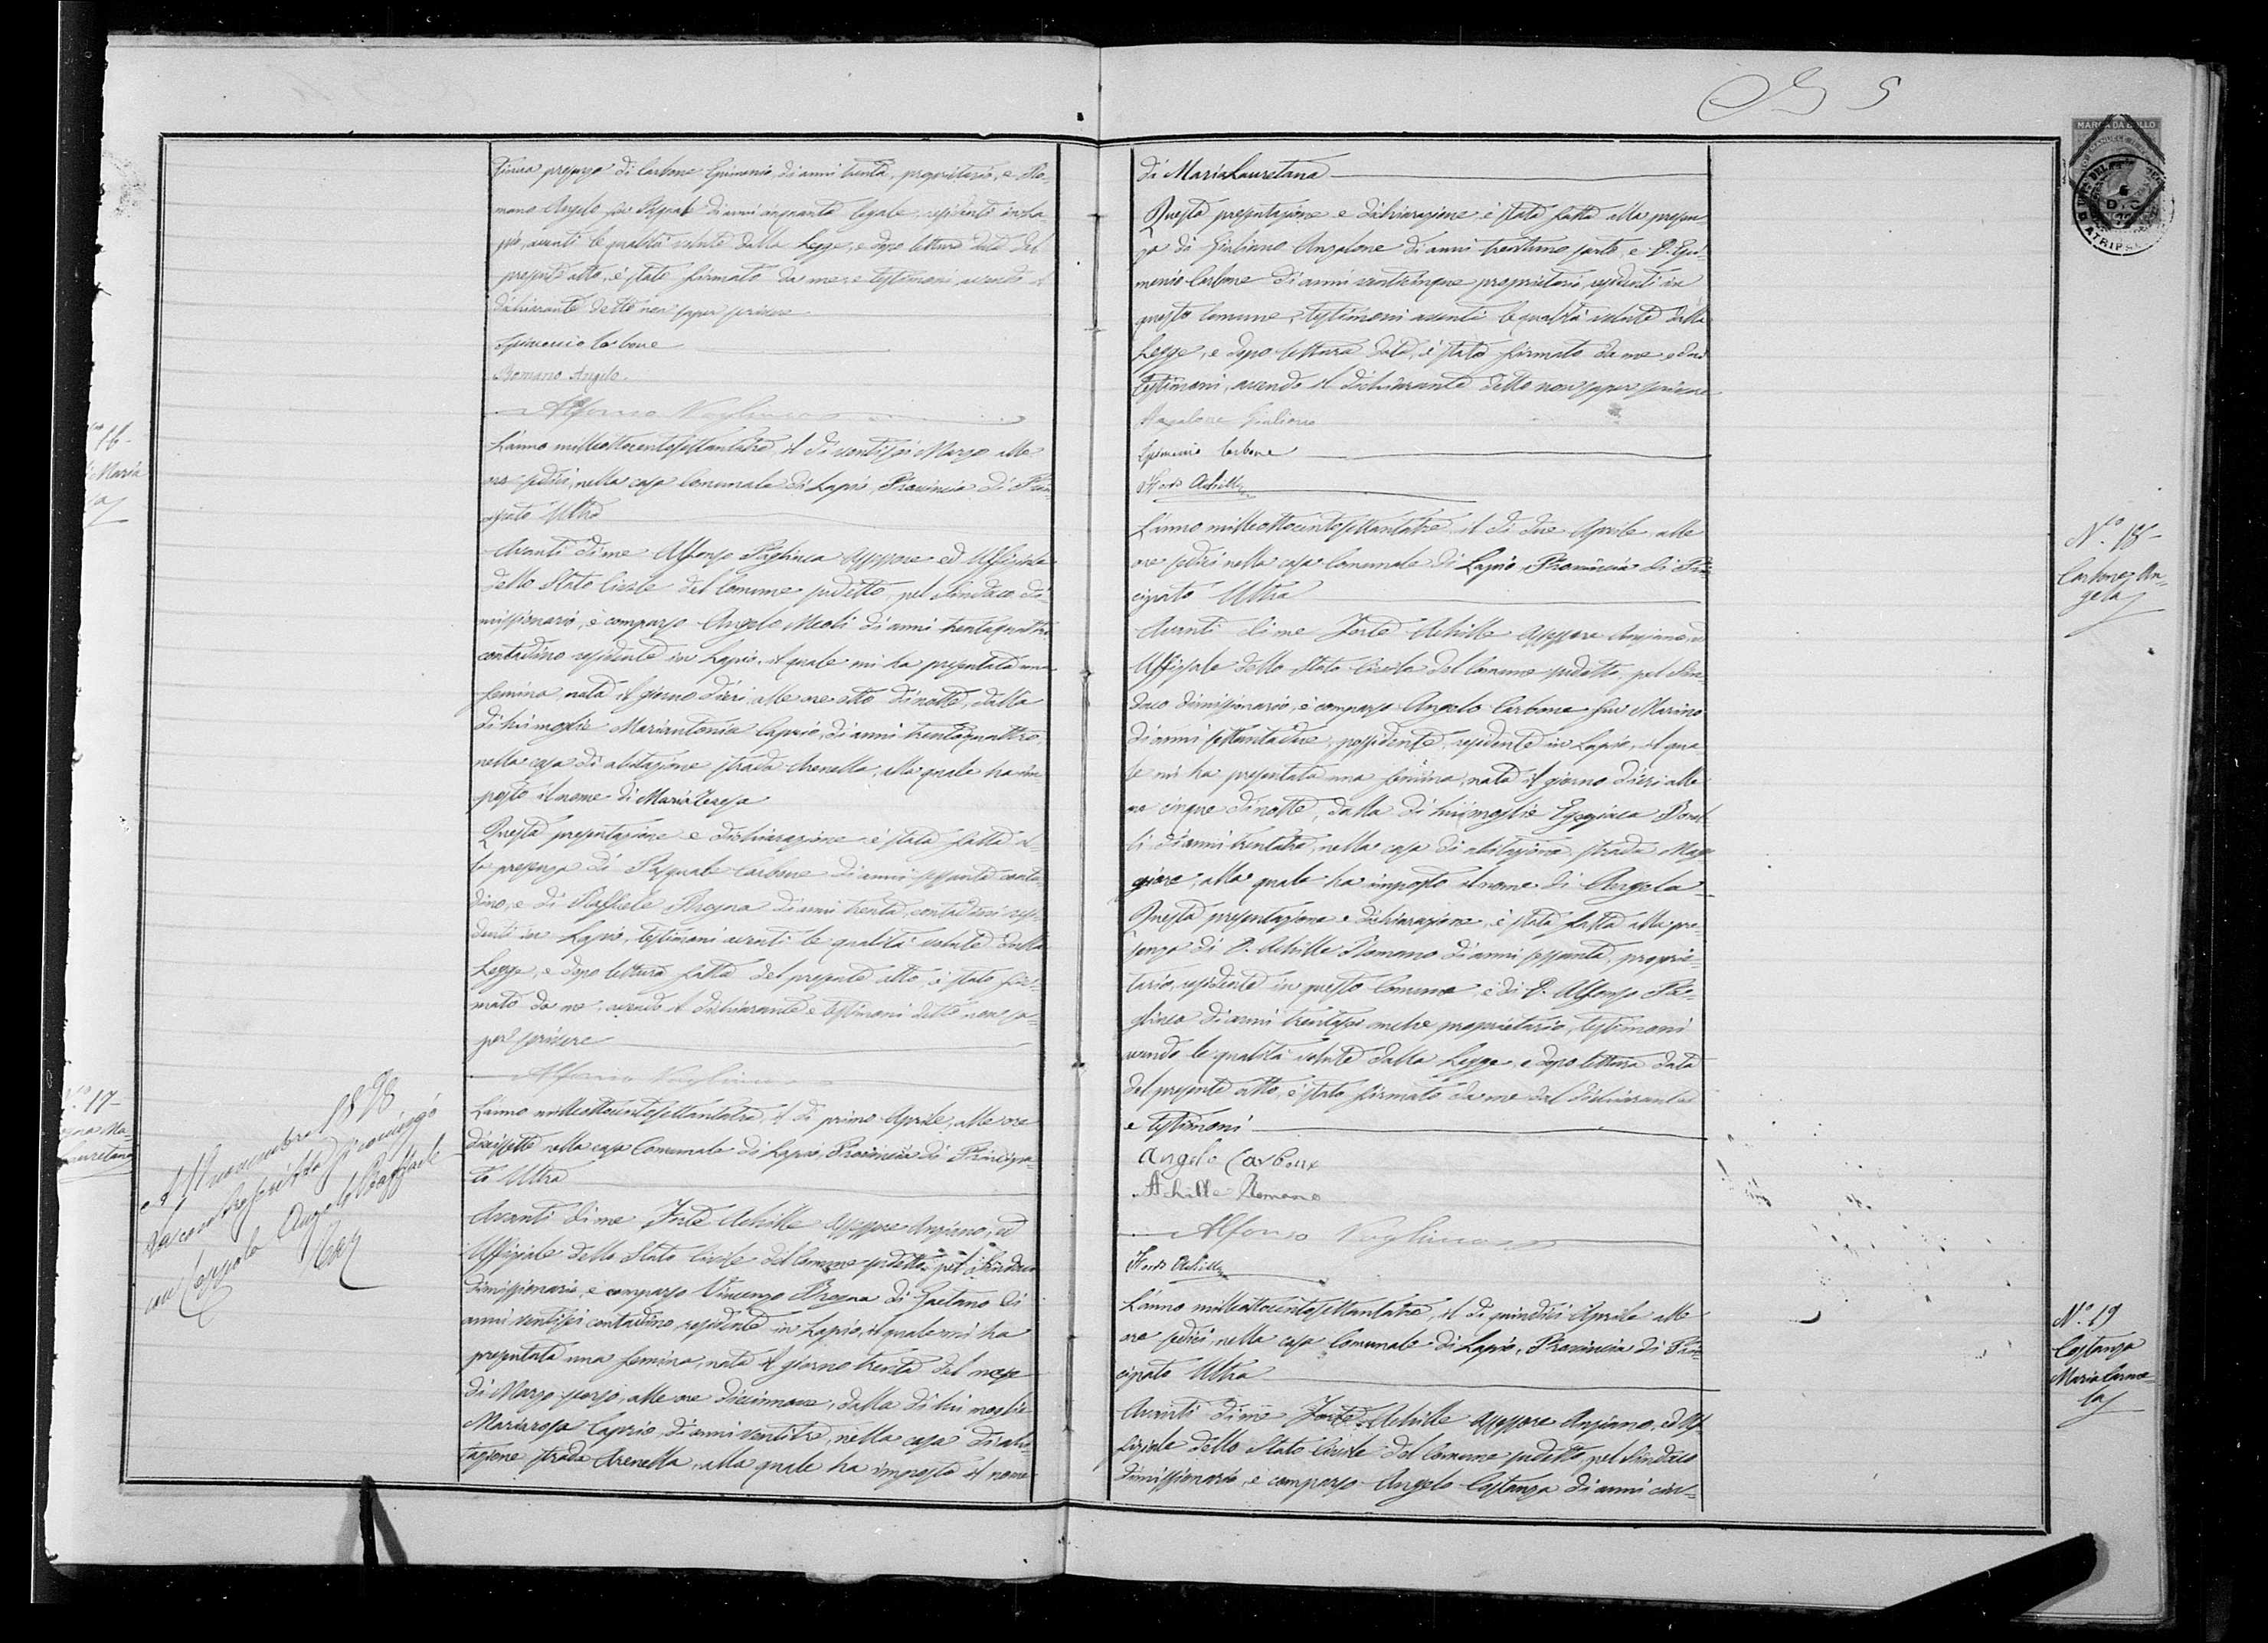 presenza di Carbone Epimenio, di anni trenta, proprietario, e Ro-
mano Angelo fu Pasquale di anni cinquanta legale, residenti in La-
pio, aventi le qualità volute dalla Legge, e dopo lettura data del
presente atto, è stato firmato da me e testimoni, avendo il
dichiarante detto non saper scrivere
Epimenio Carbone
Romano Angelo
Alfonso Vagliuca
16
Maria
L'anno milleottocentosettantatre, il dì ventisei Marzo alle
ore sedici, nella casa Comunale di Lapio, Provincia di Prin-
cipato Ultra
Avanti di me Alfonso Vagliuca Assessore ed Uffiziale
dello Stato Civile del Comune sudetto, pel Sindaco di-
missionario, è comparso Angelo Meoli di anni trentaquattro
contadino residente in Lapio, il quale mi ha presentata una
femina, nata il giorno d'ieri, alle ore otto di notte, dalla
di lui moglie Mariantonia Caprio, di anni trentaquattro,
nella casa di abitazione strada Arenella, alla quale ha im
posto il nome di Maria Teresa
Questa presentazione e dichiarazione è stata fatta al-
la presenza di Pasquale Carbone di anni sessanta conta-
dino, e di Raffaele Brogna di anni trenta, contadini resi-
denti in Lapio, testimoni aventi le qualità volute dalla
Legge, e dopo lettura fatta del presente atto, è stato fir-
mato da me, avendo il dichiarante e testimoni detto non sa-
per scrivere
Alfonso Vagliuca
N.º 17
Ma-
uretana
A 11 novembre 1898
la controscritta si coniugò
con Ceppola Angelo Raffaele
L'anno milleottocentosettantatre, il dì primo Aprile, alle ore
diecisette nella casa Comunale di Lapio, Provincia di Principa-
to Ultra
Avanti di me Forte Achille Assessore Anziano, ed
Uffiziale dello Stato Civile del Comune sudetto, pel Sindaco
dimissionario, è comparso Vincenzo Brogna di Gaetano di
anni ventisei contadino, residente in Lapio, il quale mi ha
presentata una femina, nata il giorno trenta del mese
di Marzo scorso, alle ore diecinnove, dalla di lui moglie
Mariarosa Caprio, di anni ventitre, nella casa di abi-
tazione strada Arenella, alla quale ha imposto il nome
5
MARCA DA BOLLO
di Maria Lauretana
Questa presentazione e dichiarazione è stata fatta alla presen-
za di Giuliano Anzalone di anni trentuno sarto, e D. Epi-
menio Carbone di anni venticinque proprietario, residenti in
questo Comune, testimoni aventi le qualità volute dalla
Legge, e dopo lettura data, è stato firmato da me e dai
testimoni, avendo il dichiarante detto non saper scrivere
Anzalone Giuliano
Epimenio Carbone
Forte Achille
N.º 18
Carbone An-
gela
L'anno milleottocentosettantatre il dì due Aprile, alle
ore sedici nella casa Comunale di Lapio, Provincia di Prin-
cipato Ultra
Avanti di me Forte Achille Assessore Anziano, ed
Uffiziale dello Stato Civile del Comune sudetto, pel Sin-
daco dimissionario, è comparso Angelo Carbone fu Marino
di anni settantadue, possidente, residente in Lapio, il qua-
le mi ha presentata una femina, nata il giorno d'ieri alle
ore cinque di notte, dalla di lui moglie Egiziaca
di anni trentatre, nella casa di abitazione strada Mag-
giore, alla quale ha imposto il nome di Angela
Questa presentazione e dichiarazione, è stata fatta alla pre-
senza di D. Achille Romano di anni sessanta, proprie-
tario, residente in questo Comune, e di D. Alfonso Va-
gliuca di anni trentasei anche proprietario, testimoni
avendo le qualità volute dalla Legge, e dopo lettura data
del presente atto, è stato firmato da me dal dichiarante
e testimoni
Angelo Carbone
Achille Romano
Alfonso Vagliuca
Forte Achille
N.º 19
Costanza
Maria Carme-
la
L'anno milleottocentosettantatre, il dì quindici Aprile alle
ore sedici, nella casa Comunale di Lapio, Provincia di Prin-
cipato Ultra
Avanti di me Forte Achille Assessore Anziano, ed Uf-
fiziale dello Stato Civile del Comune sudetto, pel Sindaco
dimissionario, è comparso Angelo Costanza di anni cin-